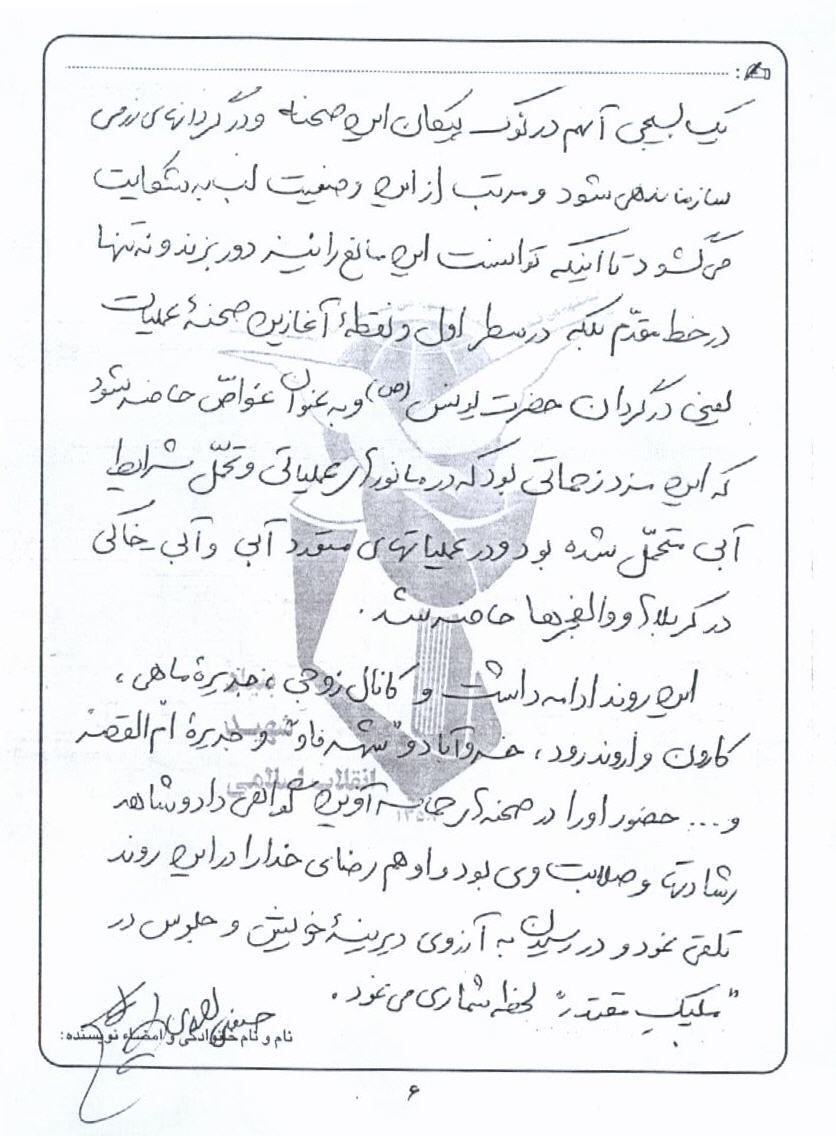 یک بسیجی آنهم در نوک پیکان این صحنه و در گردانهای رزمی
سازماندهی شود و مرتب از این وضعیت لب به شکایت
می‌گشود تا اینکه توانست این مانع را نیز دور بزند و نه تنها
در خط مقدّم بلکه در سطر اول و نقطهٔ آغازین صحنهٔ عملیات
یعنی در گردان حضرت یونس (ص) و به عنوان غواصّ حاضر شود
که این مزد زحماتی بود که در مانورهای عملیاتی و تحمّل شرایط
آبی متحمّل شده بود و در عملیاتهای متعدد آبی و آبی_خاکی
در کربلاها و والفجرها حاضر شد.
این روند ادامه داشت و کانال زوجی، جزیرهٔ ماهی،
کارون و اروندرود، خسروآباد و "شهر فاو" و جزیرهٔ امّ‌القصر
و... حضور او را در صحنه‌های حماسه آفرین گواهی داد و شاهد
رشادتها و صلابت وی بود و او هم رضای خدا را در این روند
تلقی نمود و در رسیدن به آرزوی دیرینهٔ خویش و جلوس در
"ملیکٍ مقتدر" لحظه شماری می نمود.
نام و نام خانوادگی و امضاء نویسنده:
۶
انقلاب اسلامی